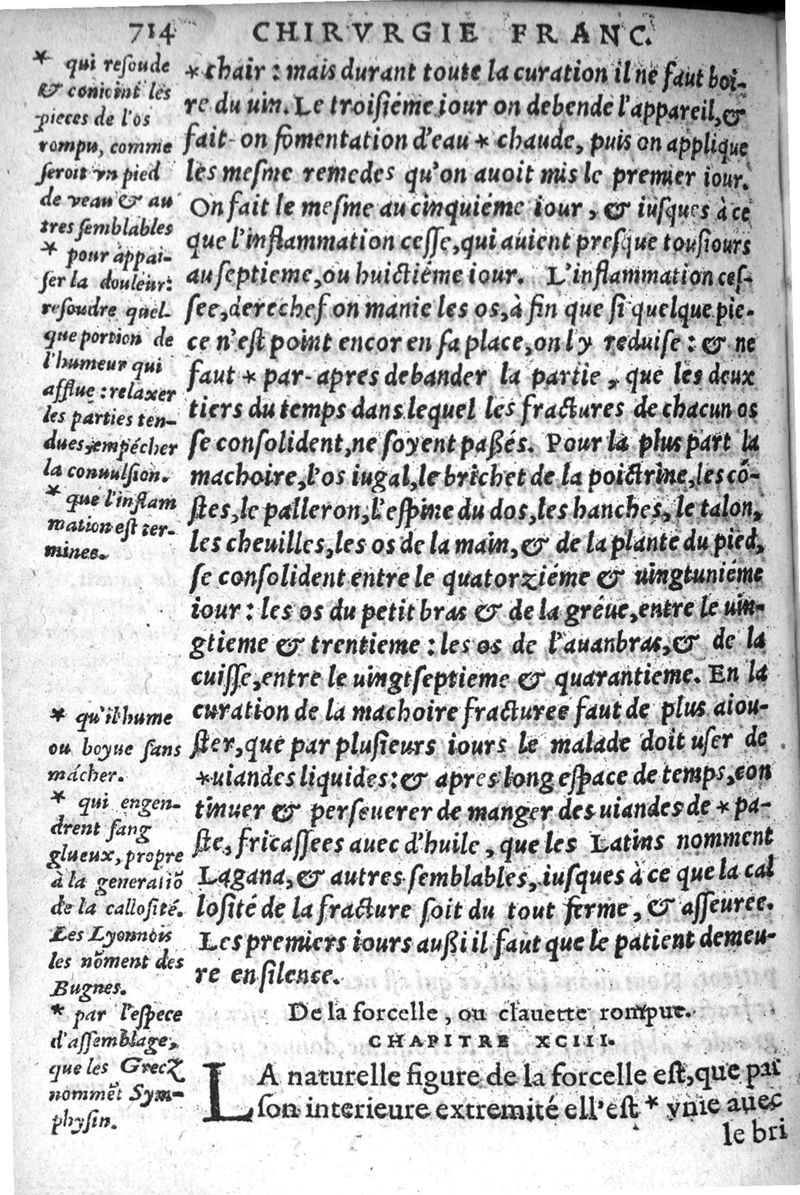 714 CHIRVRGIE FRANC.
* qui resoude
& conioint les
pieces de l'os
rompu, comme
seroit vn pied
de veau & au
tres semblables
* pour appai-
ser la douleur:
resoudre quel-
que portion de
l'humeur qui
afflue: relaxer
les parties ten-
dues, empécher
la conuulsion.
* que l'inflam
mation est ter-
minee.
* qu'il hume
ou boyue sans
mácher.
* qui engen-
drent sang
glueux, propre
à la generatiõ
de la callosité.
Les Lyonnois
les nõment des
Bugnes.
* par l'espece
d'assemblage,
que les Grecz
nommẽt Sym-
physin.
*chair: mais durant toute la curation il ne faut boi-
re du uin. Le troisiéme iour on debende l'appareil, &
fait-on fomentation d'eau * chaude, puis on applique
les mesme remedes qu'on auoit mis le premier iour.
On fait le mesme au cinquiéme iour, & iusques à ce
que l'inflammation cesse, qui auient presque tousiours
au septieme, ou huictiéme iour. L'inflammation ces-
see, derechef on manie les os, à fin que si quelque pie-
ce n'est point encor en sa place, on l'y reduise: & ne
faut * par-apres debander la partie, que les deux
tiers du temps dans lequel les fractures de chacun os
se consolident, ne soyent paßés. Pour la plus part la
machoire, l'os iugal, le brichet de la poictrine, les cô-
stes, le palleron, l'espine du dos, les hanches, le talon,
les cheuilles, les os de la main, & de la plante du pied,
se consolident entre le quatorziéme & uingtuniéme
iour: les os du petit bras & de la gréue, entre le uin-
gtieme & trentieme: les os de l'auanbras, & de la
cuisse, entre le uingtseptieme & quarantieme. En la
curation de la machoire fracturee faut de plus aiou-
ster, que par plusieurs iours le malade doit user de
*uiandes liquides: & apres long espace de temps, con
tinuer & perseuerer de manger des uiandes de * pa-
ste, fricassees auec d'huile, que les Latins nomment
Lagana, & autres semblables, iusques à ce que la cal
losité de la fracture soit du tout ferme, & asseuree.
Les premiers iours außi il faut que le patient demeu-
re en silence.
De la forcelle, ou clauette rompue.
CHAPITRE XCIII.
LA naturelle figure de la forcelle est, que par
son interieure extremité ell'est * vnie auec
le bri